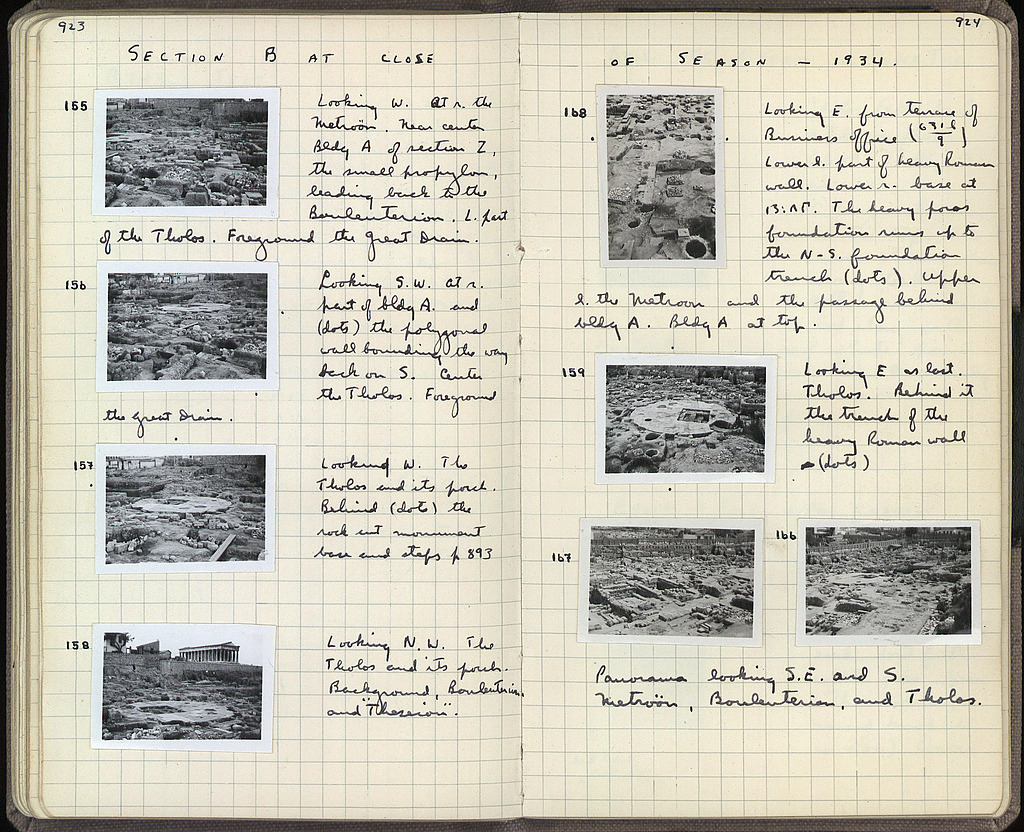 923
SECTION B AT CLOSE
155
Looking W. At r. the
Metroön. Near center
Bldg A of section Z,
the small propylon,
leading back to the
Bouleuterion. L. part
of the Tholos. Foreground the Great Drain.
156
Looking S.W. At r.
part of bldg A. and
(dots) the polygonal
wall bounding the way
back on S. Center
the Tholos. Foreground
the Great Drain.
157
Looking W. The
Tholos and its porch.
Behind (dots) the
rock cut monument
base and steps p 893
158
Looking N.W. The
Tholos and its porch.
Background, Bouleuterion
and "Theseion".
924
OF SEASON - 1934.
168
Looking E. from terrace of
Business office (631δ/9)
Lower l. part of heavy Roman
wall. Lower r. base at
The heavy poros
foundation runs up to
the N-S. foundation
trench (dots). Upper
l. the Metroon and the passage behind
bldg A. Bldg A at top.
159
Looking E as last.
Tholos. Behind it
the trench of the
heavy Roman wall
(dots)
167
166
Panorama looking S.E. and S.
Metroön, Bouleuterion, and Tholos.